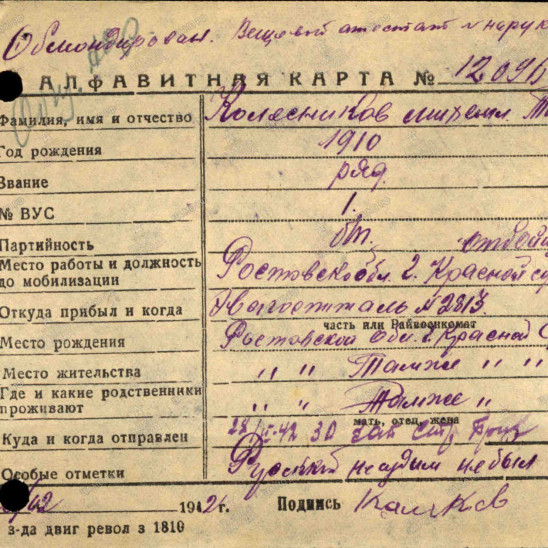 Обмондирован. Вещевой аттестат и
АЛФАВИТНАЯ КАРТА № 12096
Фамилия, имя и отчество Колесников Михаил
Год рождения 1910
Звание ряд.
№ ВУС 1.
Партийность б/п.
Место работы и должность до мобилизации Ростовской обл. г. Красной
Откуда прибыл и когда № 2813
часть или Райвоенкомат
Место рождения Ростовской обл. г. Красной
Место жительства " " Также " "
Где и какие родственники проживают " " Также "
мать, отец, жена
Куда и когда отправлен 42 30 зап стр бриг
Особые отметки Русский не судим не был
42 1942г. Подпись
з-да двиг револ з 1810